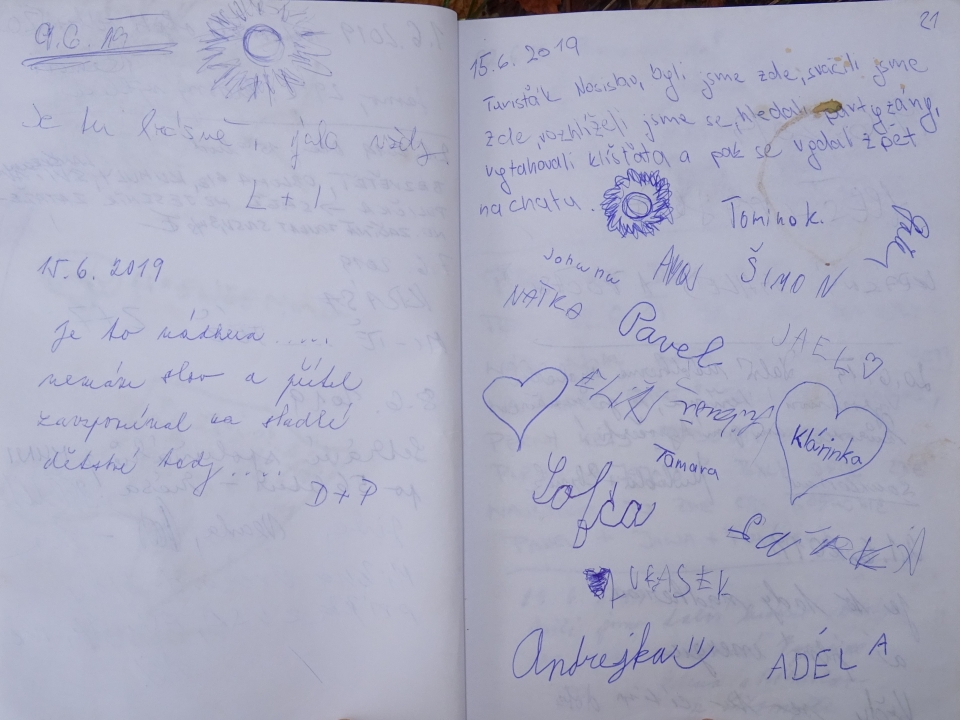 9.6. 19
Je tu krásně, jako vždy.
L + J
15.6. 2019
je to nádhera .....
nemám slov a přítel
zavzpomínal na sladké
dětské body .....
D + P
21
15.6. 2019
Turisťák Nosislav, byli jsme zde, svačili jsme
zde, rozhlíželi jsme se, hledali partyzány,
vytahovali klíšťata a pak se vydali zpět
na chatu.
Tominok.
Johana
ŠIMON
NAŤKA
Pavel
JAEL
Tamara
Klárinka
Sofča
LUKÁŠEK
Andrejka
ADÉLA